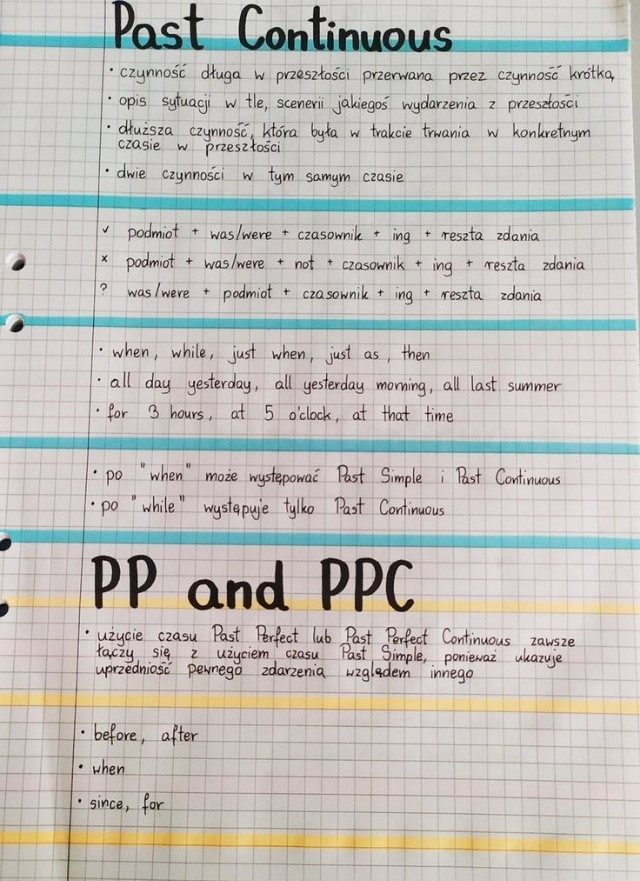 Past Continuous
· czynność długa w przeszłości przerwana przez czynność krótką
· opis sytuacji w tle, scenerii jakiegoś wydarzenia z przeszłości
· dłuższa czynność, która była w trakcie trwania w konkretnym
czasie w przeszłości
· dwie czynności w tym samym czasie
✓ podmiot + was/were + czasownik + ing + reszta zdania
x podmiot + was/were + not + czasownik + ing + reszta zdania
? was/were + podmiot + czasownik + ing + reszta zdania
· when, while, just when, just as, then
· all day yesterday, all yesterday morning, all last summer
· for 3 hours, at 5 o'clock, at that time
· po "when" może występować Past Simple i Past Continuous
· po "while" występuje tylko Past Continuous
PP and PPC
· użycie czasu Past Perfect lub Past Perfect Continuous zawsze
łączy się z użyciem czasu Past Simple, ponieważ ukazuje
uprzedniość pewnego zdarzenia względem innego
· before, after
· when
· since, for